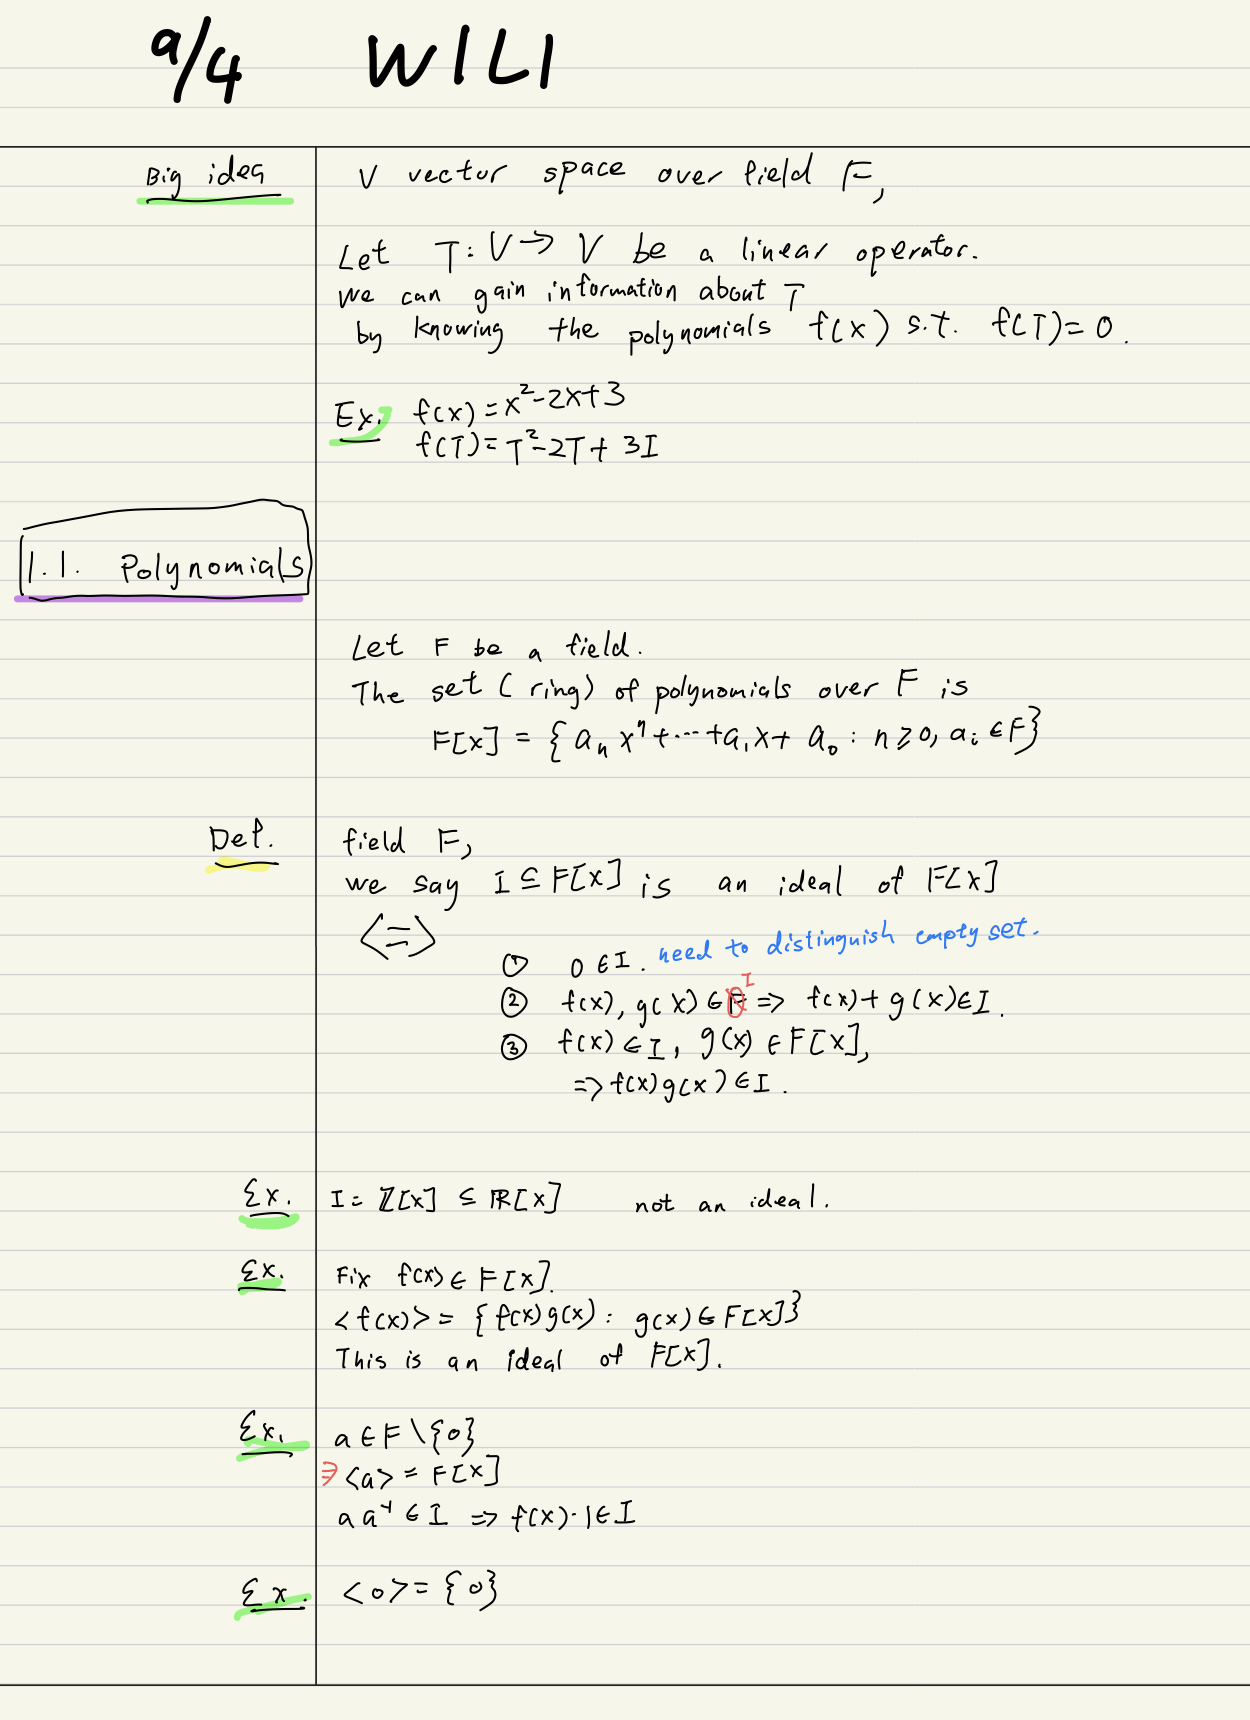 9/4 W1L1
Big idea
V vector space over field F,
Let T: V → V be a linear operator.
we can gain information about T
by knowing the polynomials f(x) s.t. f(T)=0.
Ex. f(x) = x²-2x+3
f(T) = T²-2T+3I
1.1. Polynomials
Let F be a field.
The set (ring) of polynomials over F is
F[x] = {aₙxⁿ+⋯+a₁x+a₀ : n≥0, aᵢ∈F}
Def. field F,
we say I ⊆ F[x] is an ideal of F[x]
<=>
① 0∈I. need to distinguish empty set.
② f(x), g(x) ∈ I => f(x)+g(x)∈I.
③ f(x) ∈ I, g(x) ∈ F[x],
=> f(x)g(x) ∈ I.
Ex. I = ℤ[x] ⊆ ℝ[x] not an ideal.
Ex. Fix f(x) ∈ F[x].
<f(x)> = {f(x)g(x) : g(x) ∈ F[x]}
This is an ideal of F[x].
Ex. a ∈ F \ {0}
=> <a> = F[x]
a a⁻¹ ∈ I => f(x)·1∈I
Ex. <0> = {0}